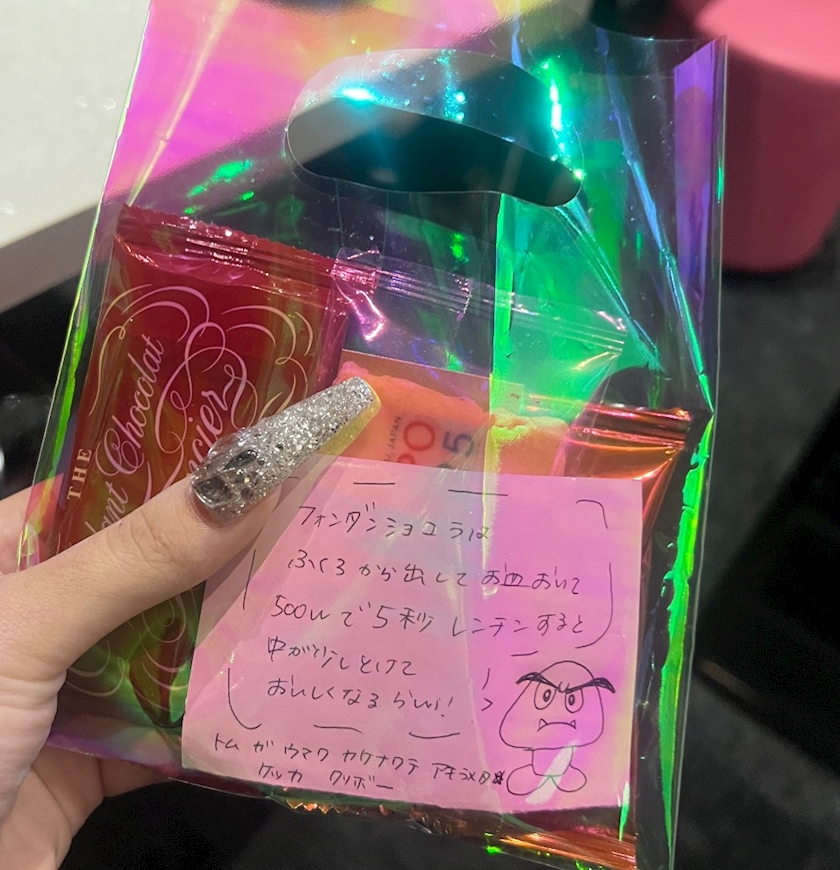 THE
Chocolat
JAPAN
フォンダンショコラは
ふくろから出してお皿おいて
500Wで5秒レンチンすると
中が少しとけて
おいしくなるらしい!
トム ガ ウマク カケナクテ アキラメタ
ケッカ クリボー